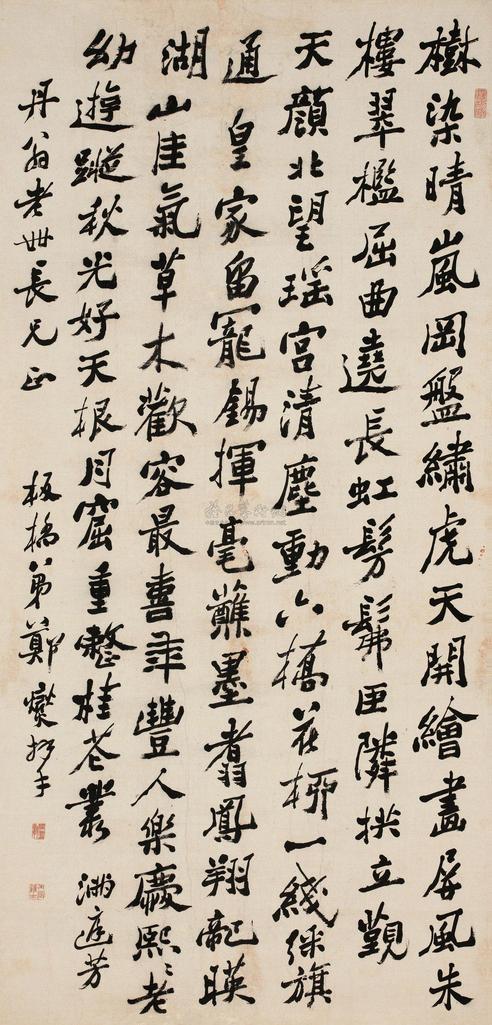 樹染晴嵐岡盤繡虎天開繪畫屏風朱
樓翠檻屈曲遶長虹髣髴匝隣拱立覲
天顏北望瑤宮清塵動六橋花柳一綫綵旗
通皇家留寵錫揮毫蘸墨翥鳳翔龍暎
湖山佳氣草木歡容最喜年豐人樂慶熙〻老
幼遊蹤秋光好天根月窟重整桂花叢 滿庭芳
丹翁老世長兄正
板橋弟鄭燮拜手